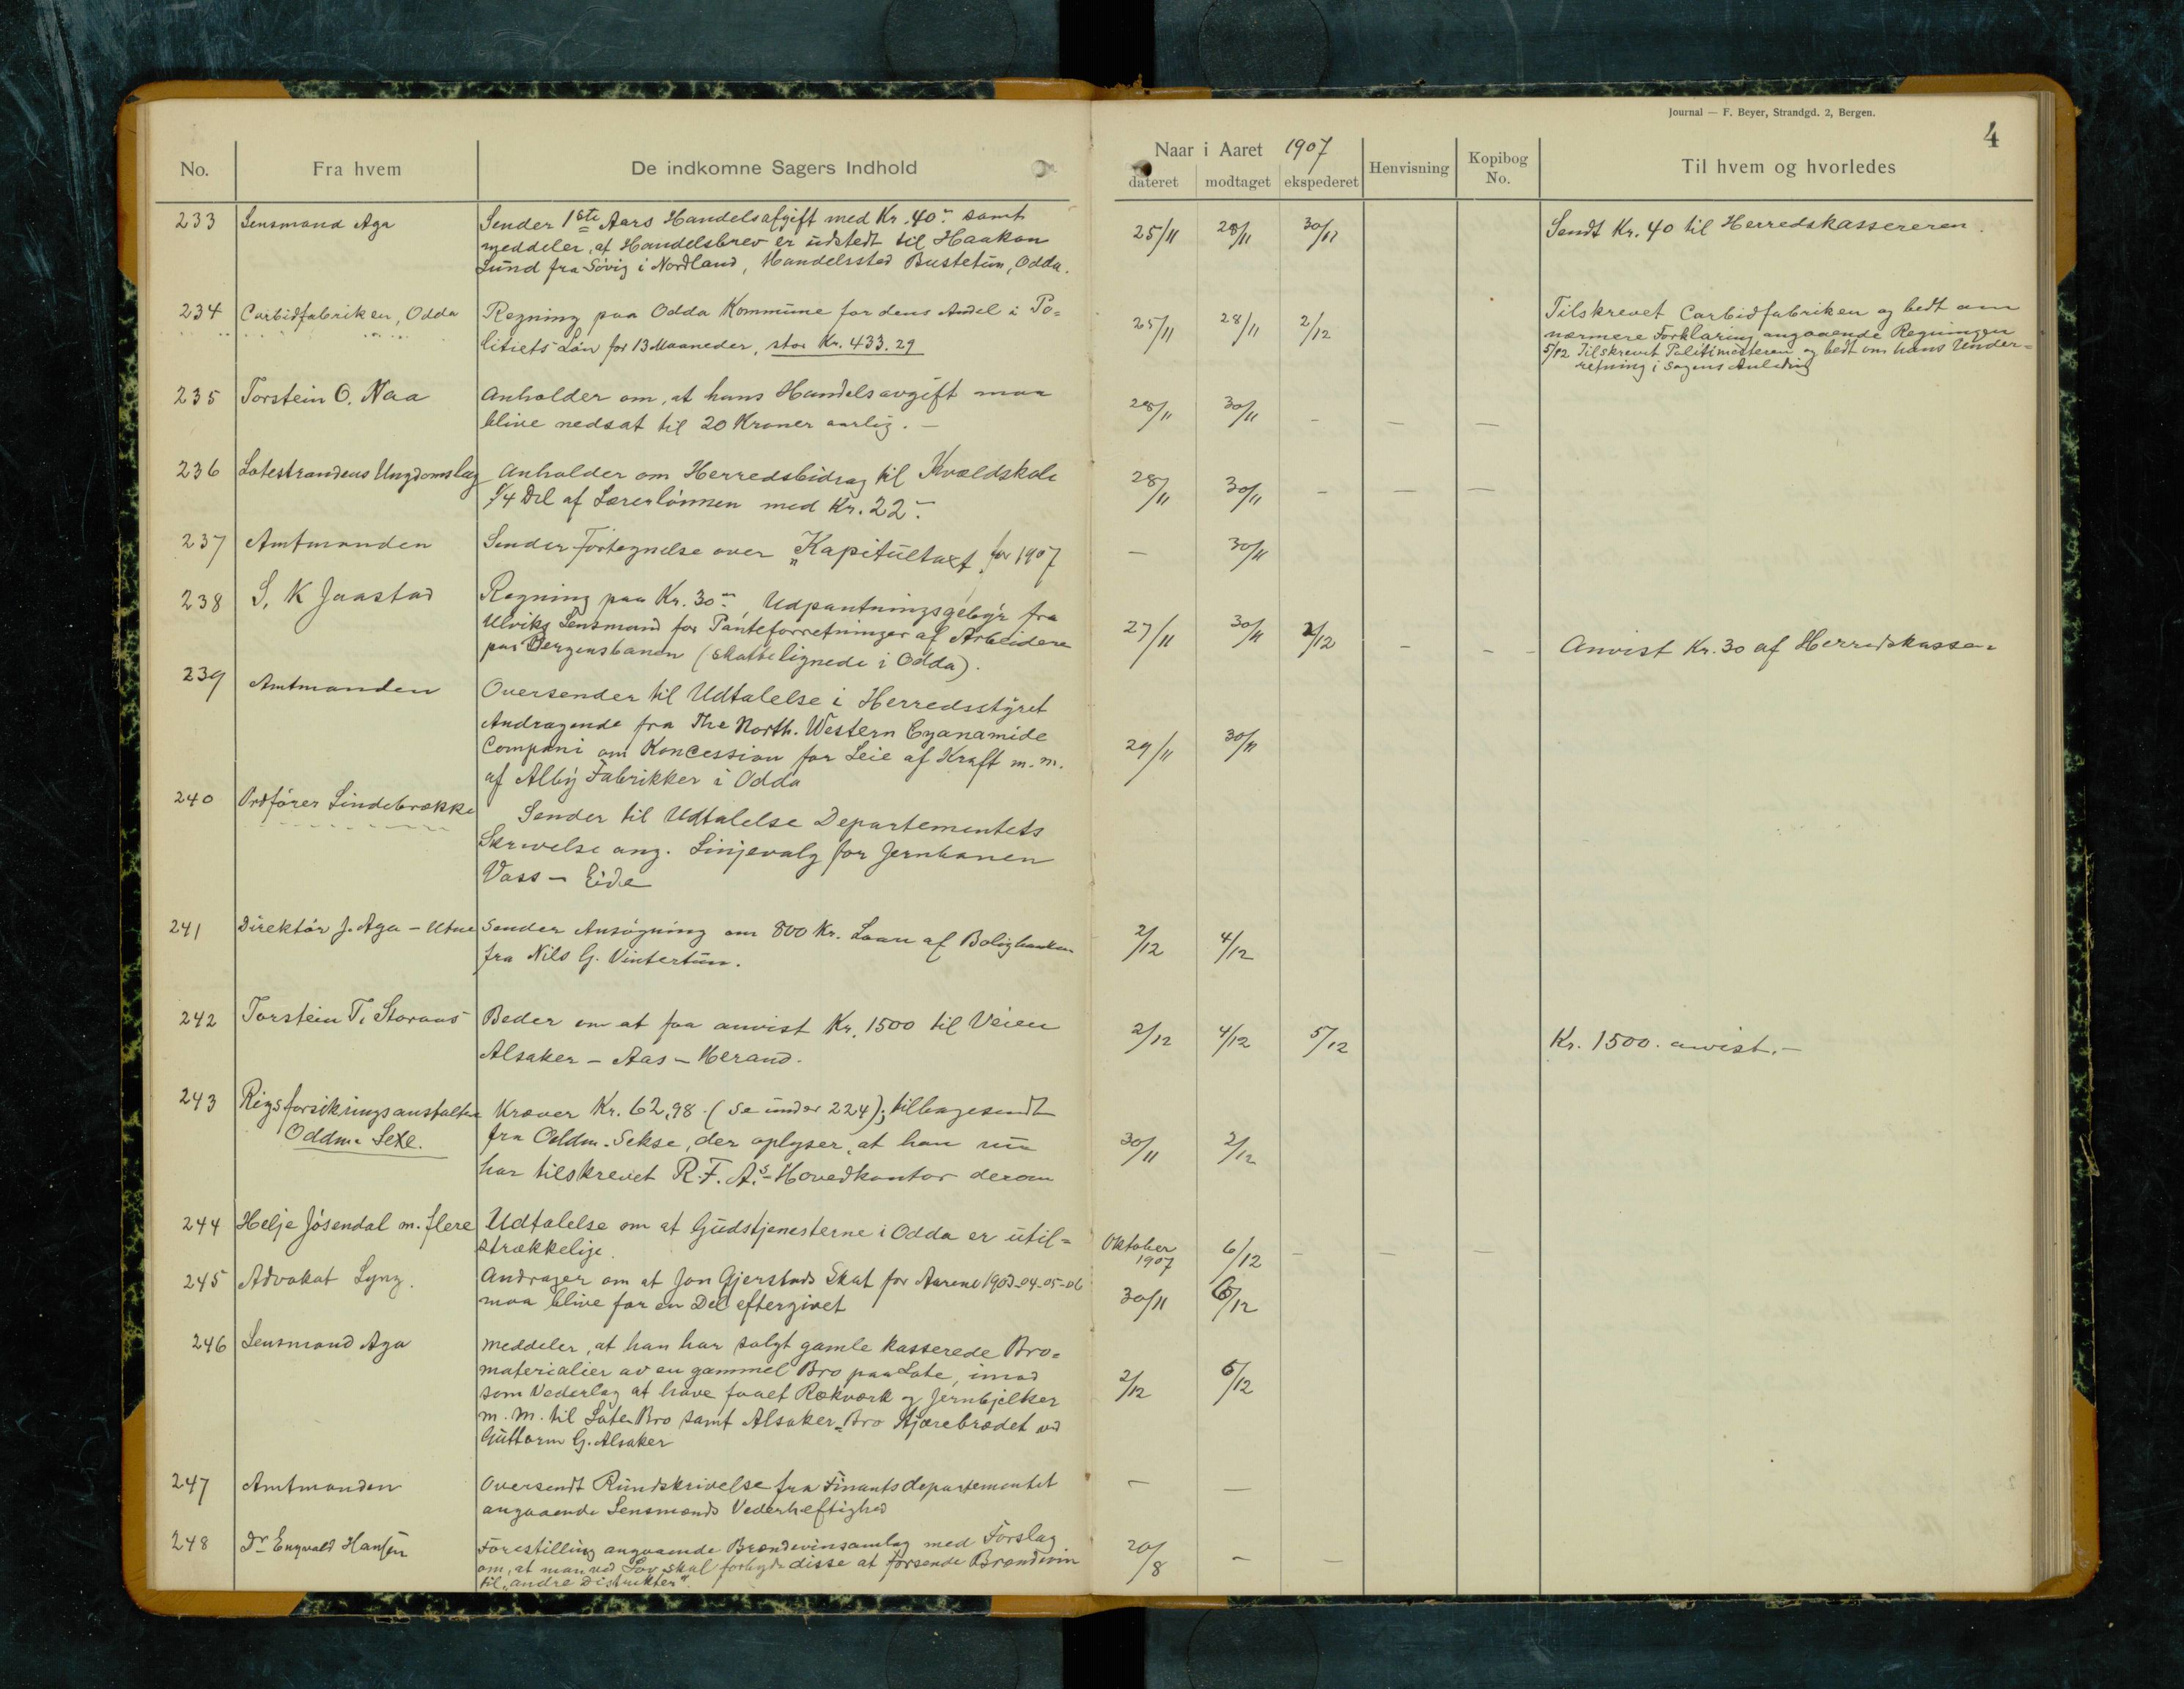 Journal — F. Beyer, Strandgd. 2, Bergen.
4
No.
Fra hvem
De indkomne Sagers Indhold
Naar i Aaret 1907
dateret
modtaget
ekspederet
Henvisning
Kopibog No.
Til hvem og hvorledes
233 Lensmand Aga
Sender 1ste Aars Handelsafgift med Kr. 40.- samt
meddeler, at Handelsbrev er udstedt til Haakon
Lund fra Søvig i Nordland, Handelssted Bustetun, Odda.
25/11 28/11 30/11
Sendt Kr. 40 til Herredskassereren.
234 Carbidfabriken, Odda
Regning paa Odda Kommune for dens Andel i Po=
litiets Løn for 13 Maaneder, stor Kr. 433.29
25/11 28/11 2/12
Tilskrevet Carbidfabriken og bedt om
nærmere Forklaring angaaende Regningen
5/12 Tilskrevet Politimesteren og bedt om hans Under=
retning i Sagens Anledng
235 Torstein O. Naa
Anholder om, at hans Handelsavgift maa
blive nedsat til 20 Kroner aarlig. —
28/11 30/11 – – —
236 Lotestrandens Ungdomslag
Anholder om Herredsbidrag til Kvældskole
1/4 Del af Lærerlønnen med Kr. 22.-
28/11 30/11 – – —
237 Amtmanden
Sender Fortegnelse over „Kapitultaxt" for 1907
— 30/11
238 S. K Jaastad
Regning paa Kr. 30.-, Udpantningsgebyr fra
Ulviks Lensmand for Panteforretninger af Arbeidere
paa Bergensbanen (skattelignede i Odda).
27/11 30/11 2/12 – – –
Anvist Kr. 30 af Herredskassen
239 Amtmanden
Oversender til Udtalelse i Herredsstyret
Andragende fra The North. Western Cyanamide
Compani om Koncession for Leie af Kraft m. m.
af Alby Fabrikker i Odda
29/11 30/11
240 Ordfører Lindebrække
Sender til Udtalelse Departementets
Skrivelse ang. Linjevalg for Jernbanen
Voss – Eide
241 Direktør J. Aga – Utne
Sender Ansøgning om 800 Kr. Laan af Boligbanken
fra Nils G. Vintertun.
2/12 4/12
242 Torstein T. Storaas
Beder om at faa anvist Kr. 1500 til Veien
Alsaker – Aas – Herand.
2/12 4/12 5/12
Kr. 1500. anvist. –
243 Rigsforsikringsanstalten
Oddm. Sexe.
Kræver Kr. 62,98. (se under 224); tilbagesendt
fra Oddm. Sekse, der oplyser, at han nu
har tilskrevet R. F. A.s – Hovedkontor derom
30/11 2/12
244 Helje Jøsendal m. flere
Udtalelse om at Gudstjenesterne i Odda er util=
strækkelige.
Oktober 1907 6/12 – – —
245 Advokat Lyng.
Andrager om at Jon Gjerstads Skat for Aarene 1903-04-05-06
maa blive for en Del eftergivet
30/11 6/12
246 Lensmand Aga
Meddeler, at han har solgt gamle kasserede Bro=
materialier av en gammel Bro paa Lote, imod
som Vederlag at have faaet Rækværk og Jernbjelker
m. m. til Lote Bro samt Alsaker=Bro
Guttorm G. Alsaker
2/12 5/12
247 Amtmanden
Oversendt Rundskrivelse fra Finantsdepartementet
angaaende Lensmænds Vederheftighed
– —
248 Dr Engvald Hansen
Forestilling angaaende Brændevinsamlag med Forslag
om, at man ved Lov skal forbyde disse at forsende Brændevin
til „andre Distrikter".
20/8 – –